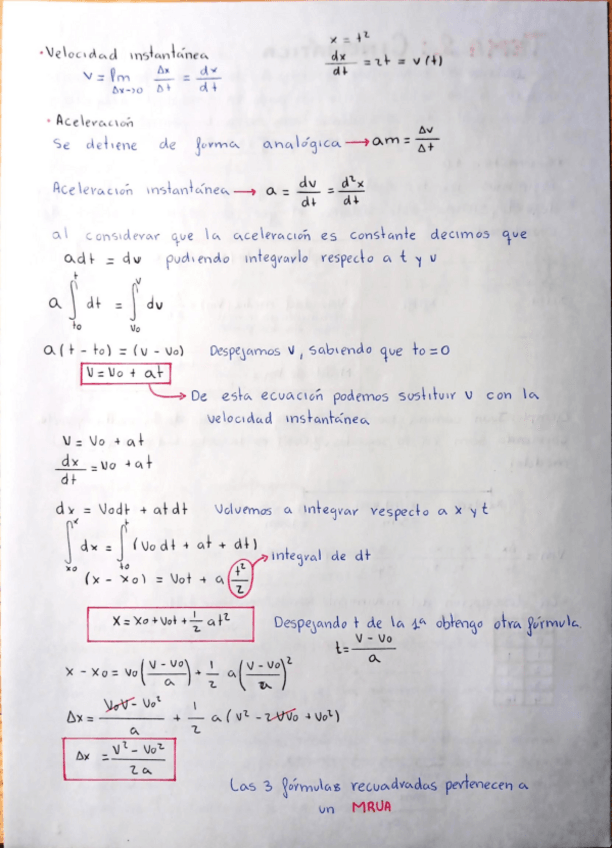 • Velocidad instantánea
v = lím Δx→0 Δx/Δt = dx/dt
x = t²
dx/dt = 2t = v(t)
• Aceleración
Se detiene de forma analógica → am = Δv/Δt
Aceleración instantánea → a = dv/dt = d²x/dt
al considerar que la aceleración es constante decimos que
adt = dv pudiendo integrarlo respecto a t y v
a ∫_{to}^{t} dt = ∫_{vo}^{v} dv
a(t - to) = (v - vo) Despejamos v, sabiendo que to = 0
v = vo + at
→ De esta ecuación podemos sustituir v con la
velocidad instantánea
v = vo + at
dx/dt = vo + at
dx = vodt + atdt Volvemos a integrar respecto a x y t
∫_{xo}^{x} dx = ∫_{to}^{t} (vo dt + at + dt)
(x - xo) = vot + a t²/2 → integral de dt
x = xo + vot + 1/2 at² Despejando t de la 1ª obtengo otra fórmula
t = v - vo/a
x - xo = vo(v - vo/a) + 1/2 a(v - vo/a)²
Δx = vov - vo²/a + 1/2 a(v² - 2vvo + vo²)
Δx = v² - vo²/2a
Las 3 fórmulas recuadradas pertenecen a
un MRUA